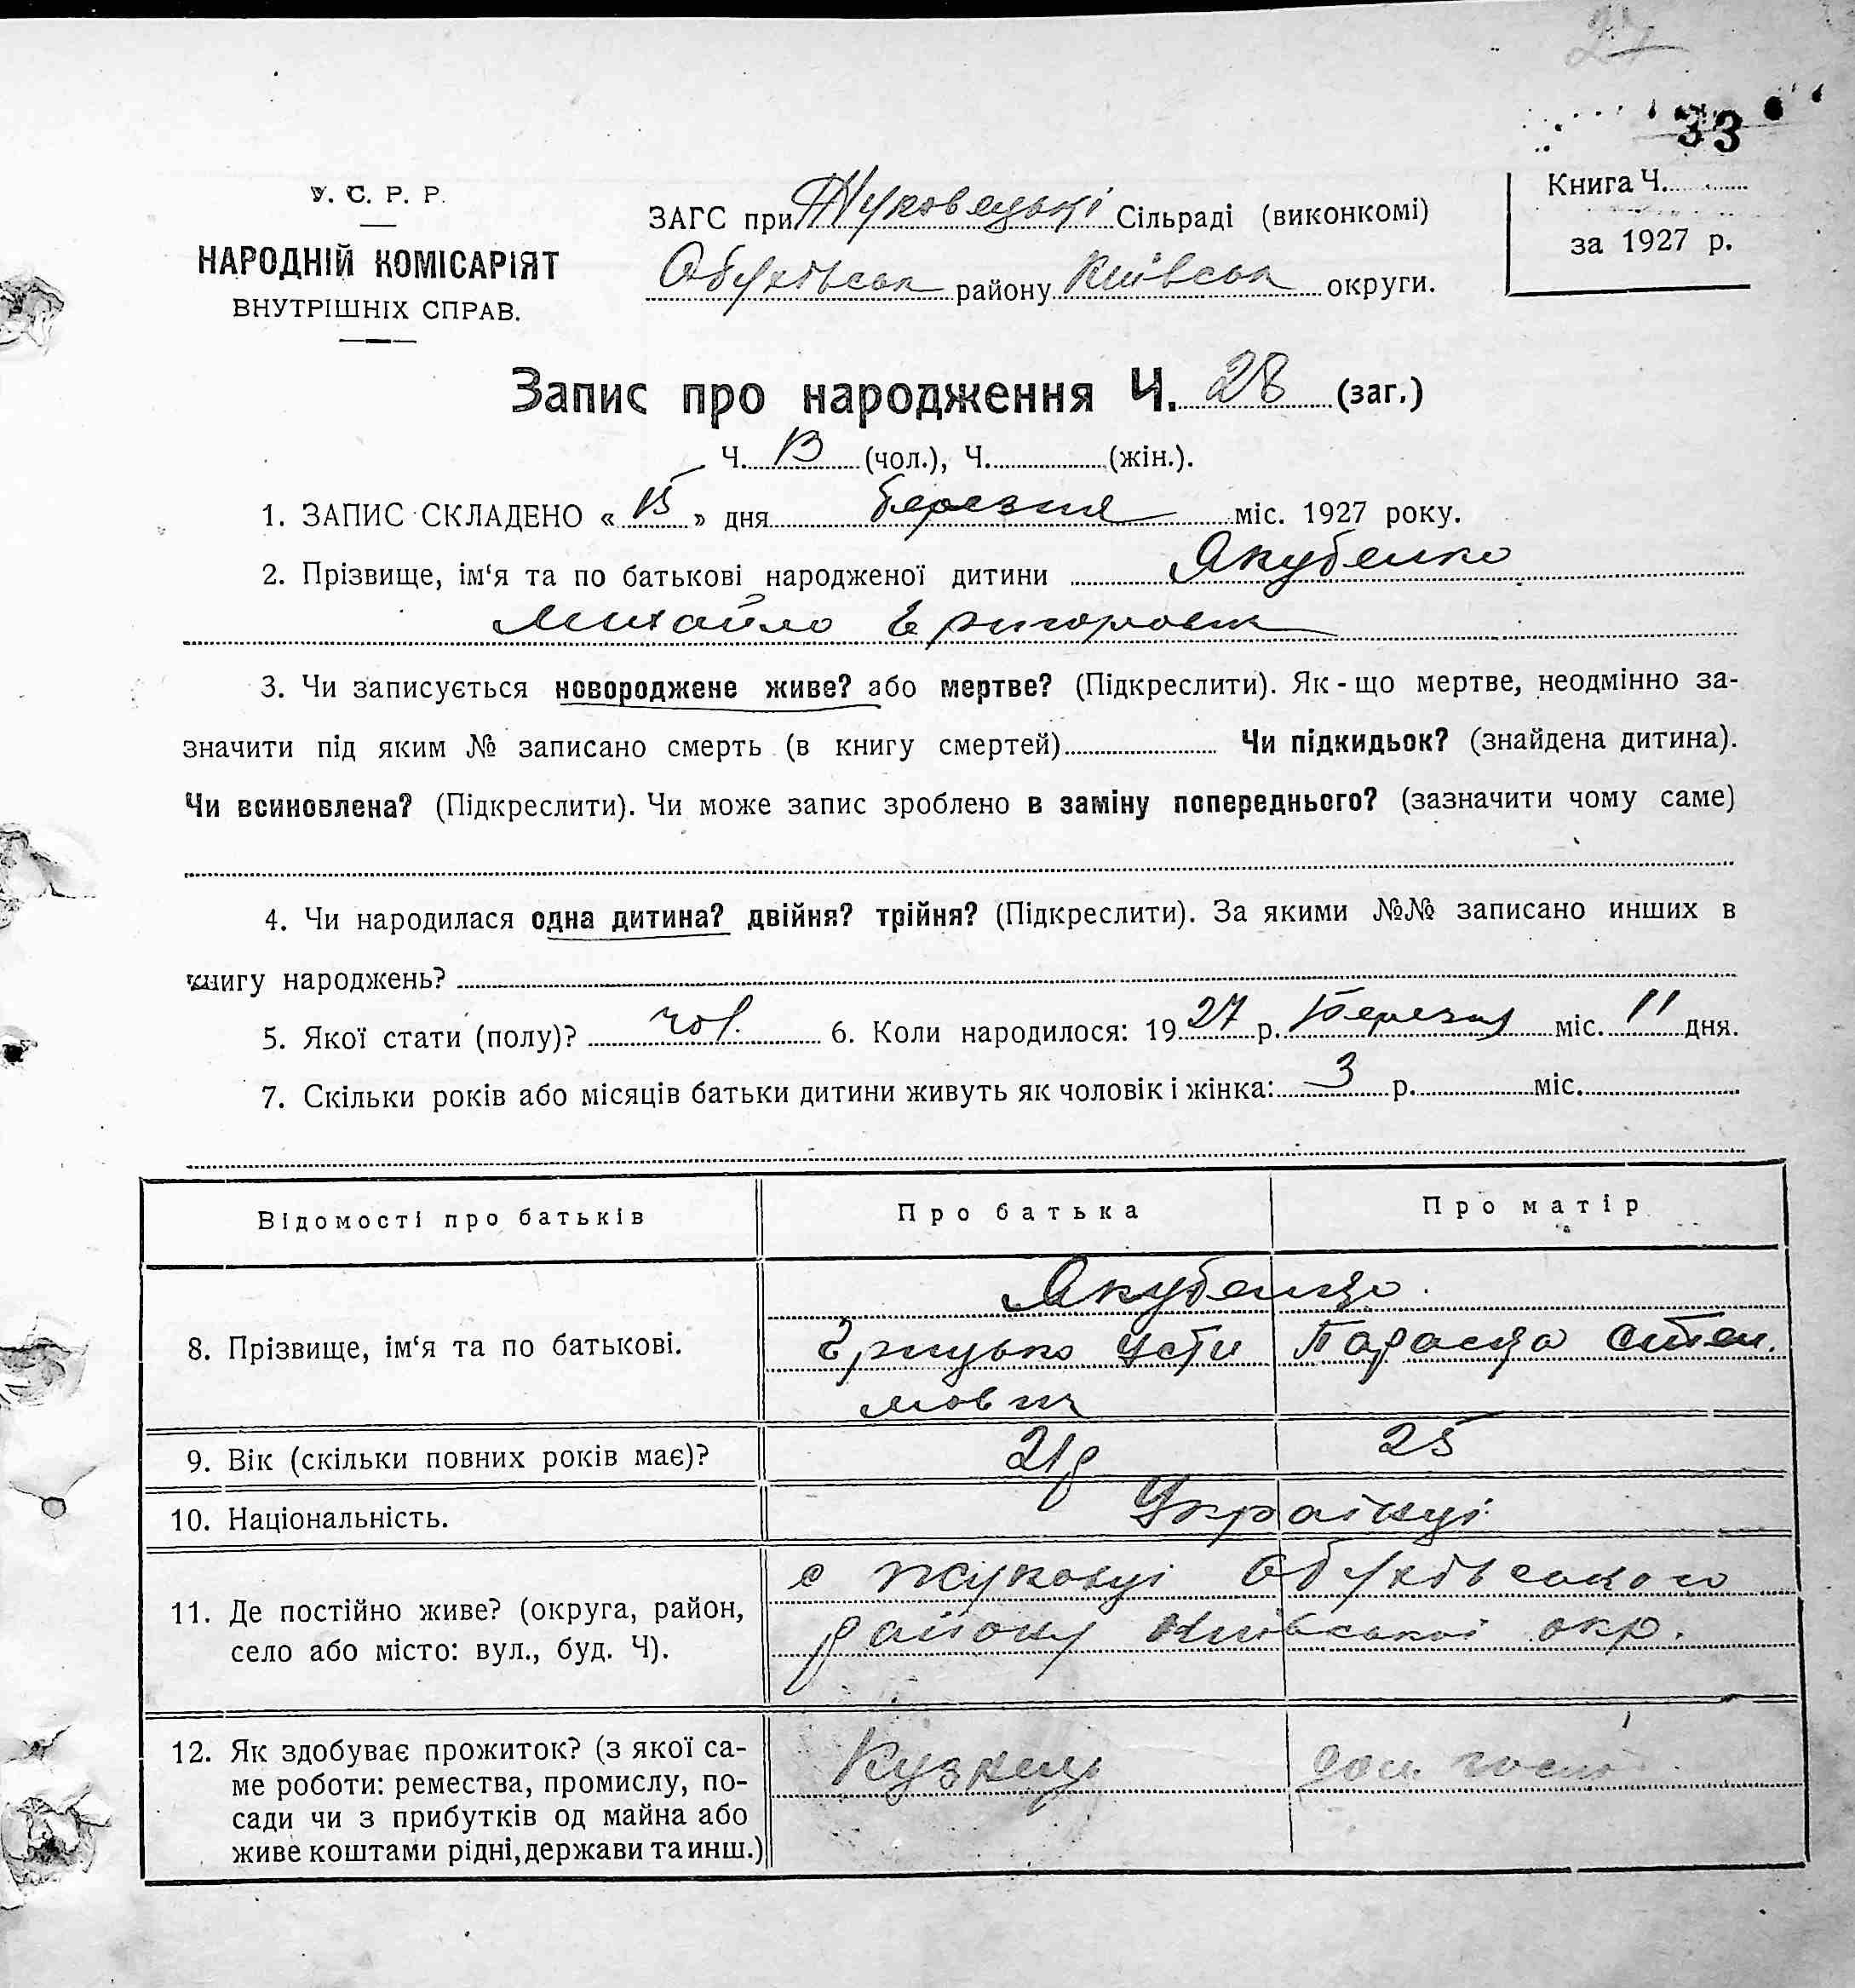 27
33
У. С. Р. Р.
НАРОДНІЙ КОМІСАРІЯТ
ВНУТРІШНІХ СПРАВ.
ЗАГС при Жуковецькі Сільраді (виконкомі)
Обухівськ району Київськ округи.
Книга Ч.
за 1927 р.
Запис про народження Ч. 28 (заг.)
Ч. 13 (чол.), Ч. (жін.).
1. ЗАПИС СКЛАДЕНО « 15 » дня березня міс. 1927 року.
2. Прізвище, ім‘я та по батькові народженої дитини Якубенко
Михайло Григорович
3. Чи записується новороджене живе? або мертве? (Підкреслити). Як-що мертве, неодмінно за-
значити під яким № записано смерть (в книгу смертей) Чи підкидьок? (знайдена дитина).
Чи всиновлена? (Підкреслити). Чи може запис зроблено в заміну попереднього? (зазначити чому саме)
4. Чи народилася одна дитина? двійня? трійня? (Підкреслити). За якими №№ записано инших в
книгу народжень?
5. Якої стати (полу)? чол. 6. Коли народилося: 1927 р. Березня міс. 11 дня.
7. Скільки років або місяців батьки дитини живуть як чоловік і жінка: 3 р. міс.
Відомості про батьків Про батька Про матір
Якубенко
8. Прізвище, ім‘я та по батькові. Грицько Усти Параска Степ.
мович
9. Вік (скільки повних років має)? 21р 25
10. Національність. Українці
с Жуковці Обухівського
11. Де постійно живе? (округа, район,
району Київської окр.
село або місто: вул., буд. Ч).
12. Як здобуває прожиток? (з якої са- Кузнець дом. госп
ме роботи: ремества, промислу, по-
сади чи з прибутків од майна або
живе коштами рідні, держави та инш.)